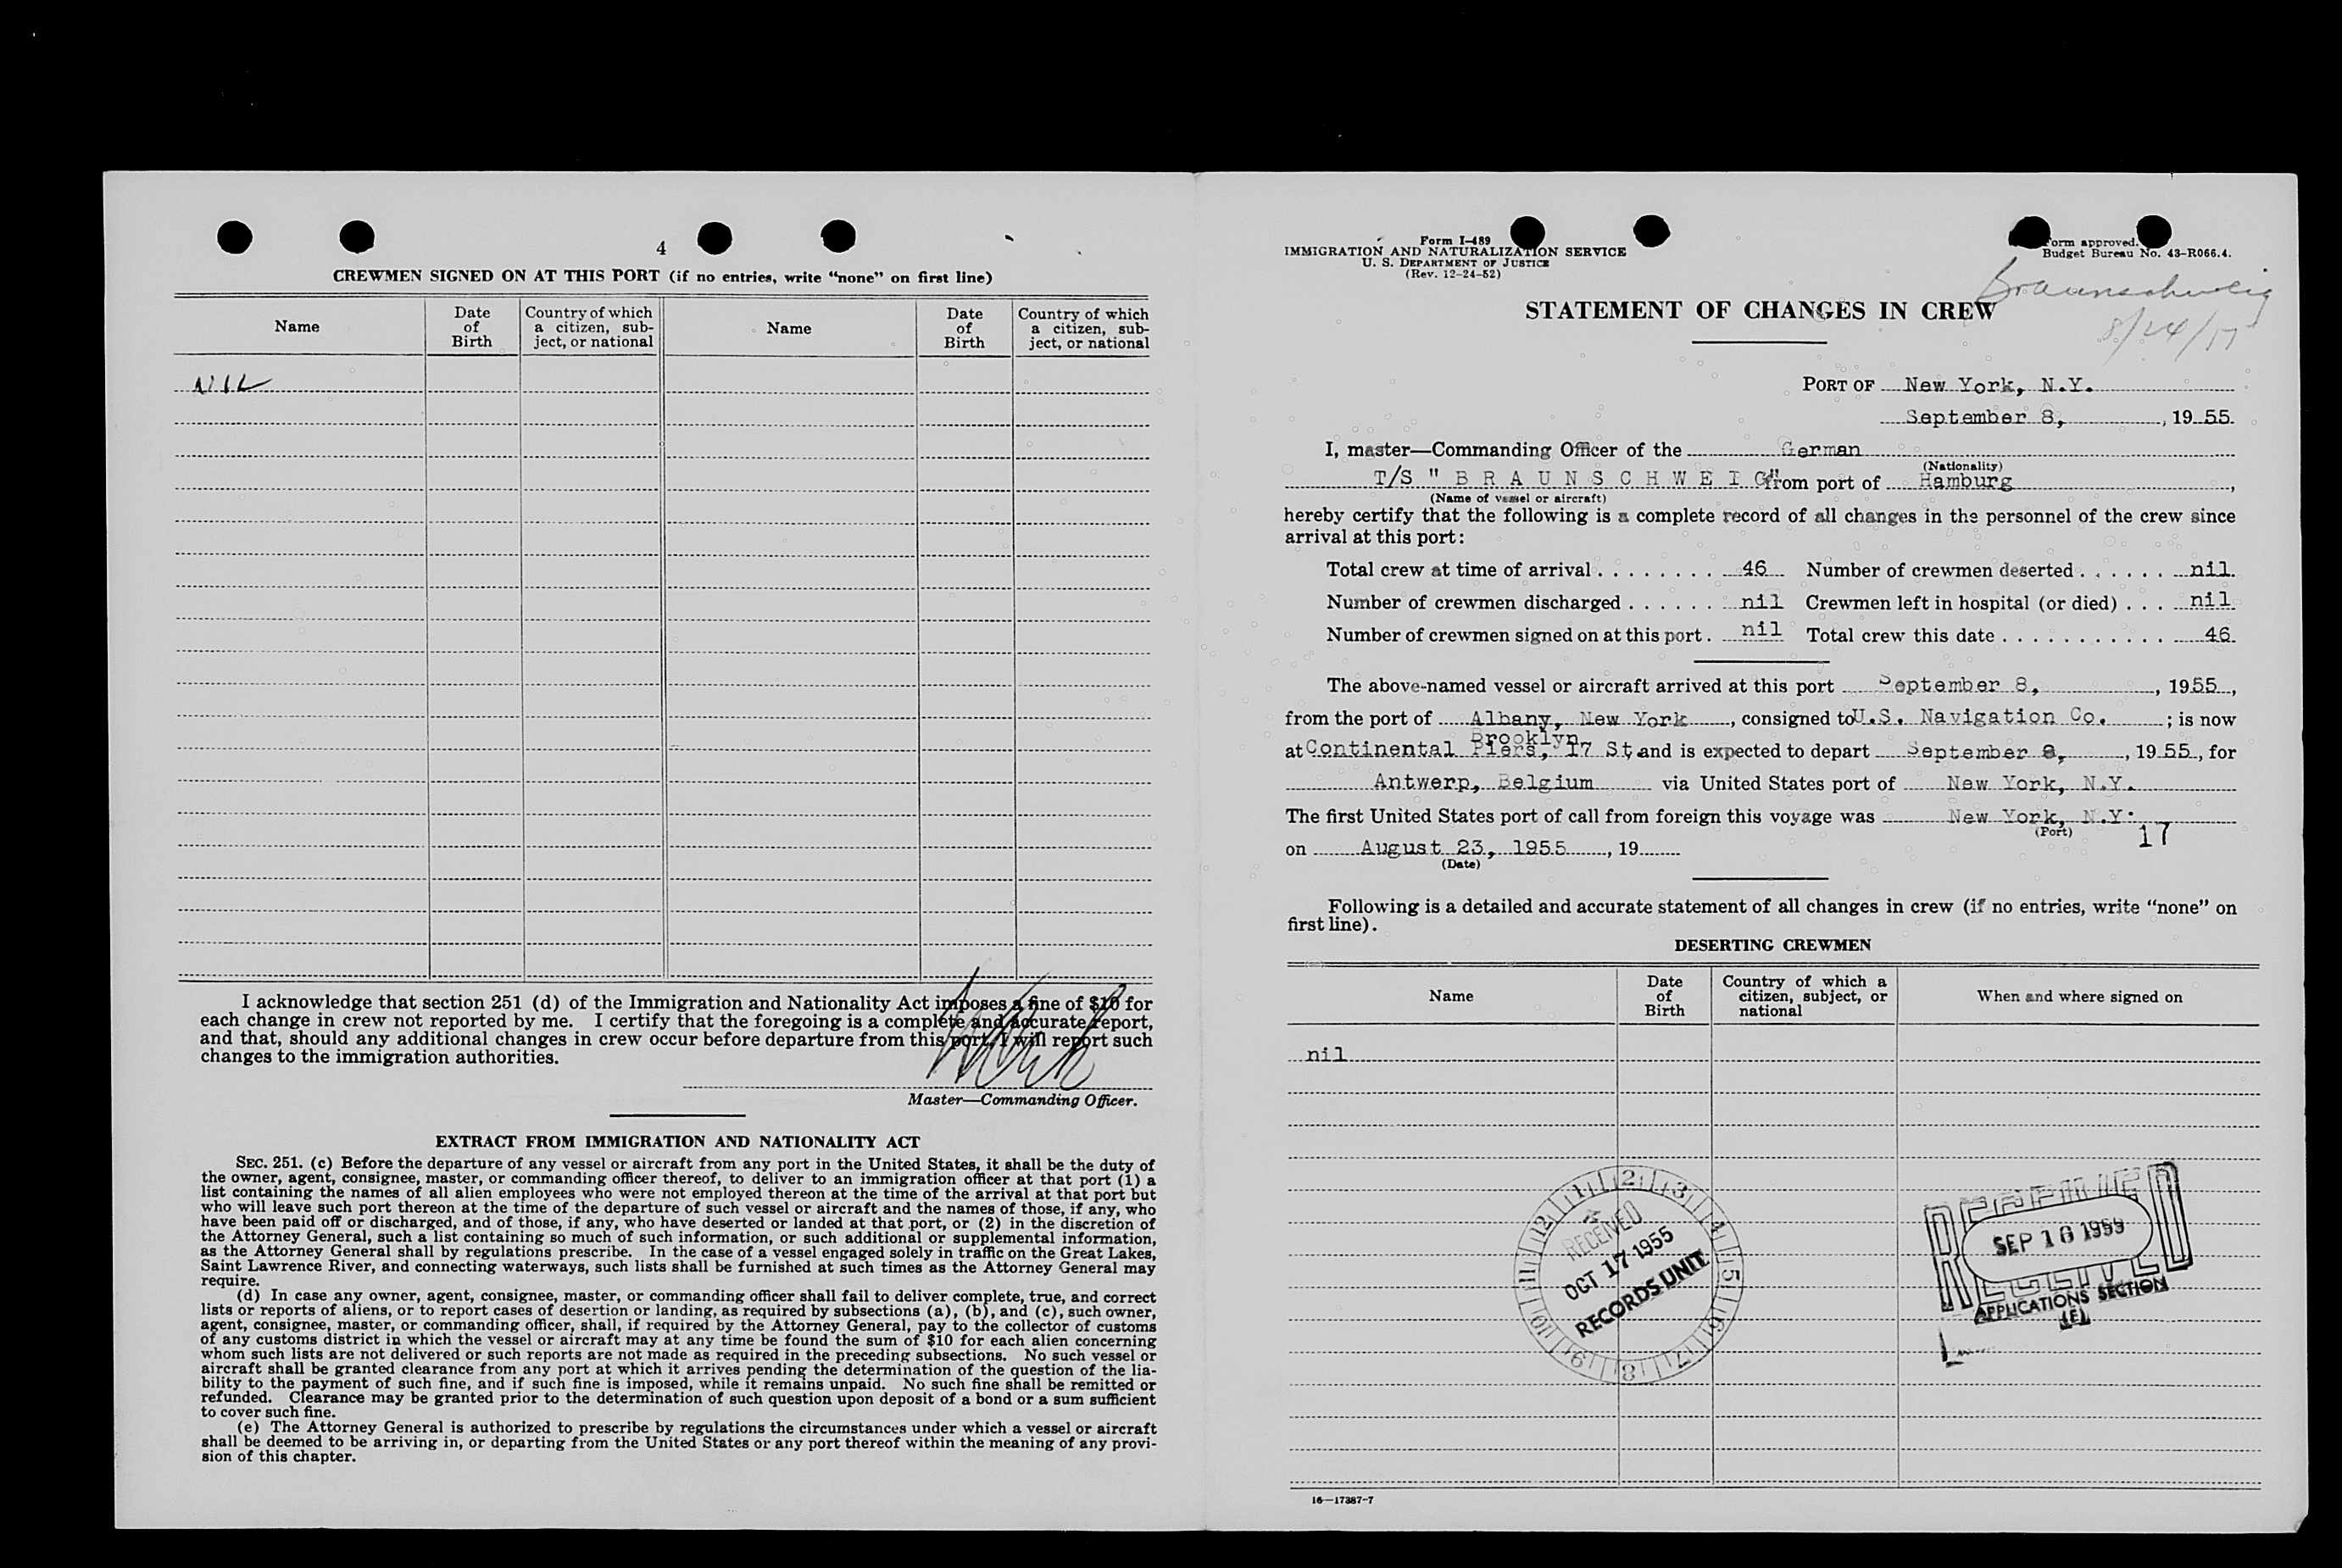 4
CREWMEN SIGNED ON AT THIS PORT (if no entries, write “none” on first line)
Name
Date of Birth
Country of which a citizen, subject, or national
Name
Date of Birth
Country of which a citizen, subject, or national
NIL
I acknowledge that section 251 (d) of the Immigration and Nationality Act imposes a fine of $10 for
each change in crew not reported by me. I certify that the foregoing is a complete and accurate report,
and that, should any additional changes in crew occur before departure from this port, I will report such
changes to the immigration authorities.
Master—Commanding Officer.
EXTRACT FROM IMMIGRATION AND NATIONALITY ACT
SEC. 251. (c) Before the departure of any vessel or aircraft from any port in the United States, it shall be the duty of
the owner, agent, consignee, master, or commanding officer thereof, to deliver to an immigration officer at that port (1) a
list containing the names of all alien employees who were not employed thereon at the time of the arrival at that port but
who will leave such port thereon at the time of the departure of such vessel or aircraft and the names of those, if any, who
have been paid off or discharged, and of those, if any, who have deserted or landed at that port, or (2) in the discretion of
the Attorney General, such a list containing so much of such information, or such additional or supplemental information,
as the Attorney General shall by regulations prescribe. In the case of a vessel engaged solely in traffic on the Great Lakes,
Saint Lawrence River, and connecting waterways, such lists shall be furnished at such times as the Attorney General may
require.
(d) In case any owner, agent, consignee, master, or commanding officer shall fail to deliver complete, true, and correct
lists or reports of aliens, or to report cases of desertion or landing, as required by subsections (a), (b), and (c), such owner,
agent, consignee, master, or commanding officer, shall, if required by the Attorney General, pay to the collector of customs
of any customs district in which the vessel or aircraft may at any time be found the sum of $10 for each alien concerning
whom such lists are not delivered or such reports are not made as required in the preceding subsections. No such vessel or
aircraft shall be granted clearance from any port at which it arrives pending the determination of the question of the lia-
bility to the payment of such fine, and if such fine is imposed, while it remains unpaid. No such fine shall be remitted or
refunded. Clearance may be granted prior to the determination of such question upon deposit of a bond or a sum sufficient
to cover such fine.
(e) The Attorney General is authorized to prescribe by regulations the circumstances under which a vessel or aircraft
shall be deemed to be arriving in, or departing from the United States or any port thereof within the meaning of any provi-
sion of this chapter.
Form I-489
IMMIGRATION AND NATURALIZATION SERVICE
U. S. DEPARTMENT OF JUSTICE
(Rev. 12-24-52)
orm approved.
Budget Bureau No. 43-R066.4.
Braunschweig
STATEMENT OF CHANGES IN CREW
PORT OF New York, N.Y.
September 8, , 19 55
I, master—Commanding Officer of the German
(Nationality)
T/S " B R A U N S C H W E I G" from port of Hamburg ,
(Name of vessel or aircraft)
hereby certify that the following is a complete record of all changes in the personnel of the crew since
arrival at this port:
Total crew at time of arrival . . . . . . . . 46 Number of crewmen deserted . . . . . . nil.
Number of crewmen discharged . . . . . . nil Crewmen left in hospital (or died) . . . nil
Number of crewmen signed on at this port . nil Total crew this date . . . . . . . . . . . . 46
The above-named vessel or aircraft arrived at this port September 8, , 1955 ,
from the port of Albany, New York , consigned to U.S. Navigation Co. ; is now
Brooklyn
at Continental Piers, 17 St. and is expected to depart September 8, , 19 55 , for
Antwerp, Belgium via United States port of New York, N.Y.
The first United States port of call from foreign this voyage was New York, N.Y.
(Port)
17
on August 23, 1955 , 19
(Date)
Following is a detailed and accurate statement of all changes in crew (if no entries, write “none” on
first line).
DESERTING CREWMEN
Name
Date of Birth
Country of which a citizen, subject, or national
When and where signed on
nil
12 1 2 3 4 5 6 7 8 9 10 11
RECEIVED
OCT 17 1955
RECORDS UNIT
SEP 16 1955
RECEIVED
APPLICATIONS SECTION
(E)
16—17387-7